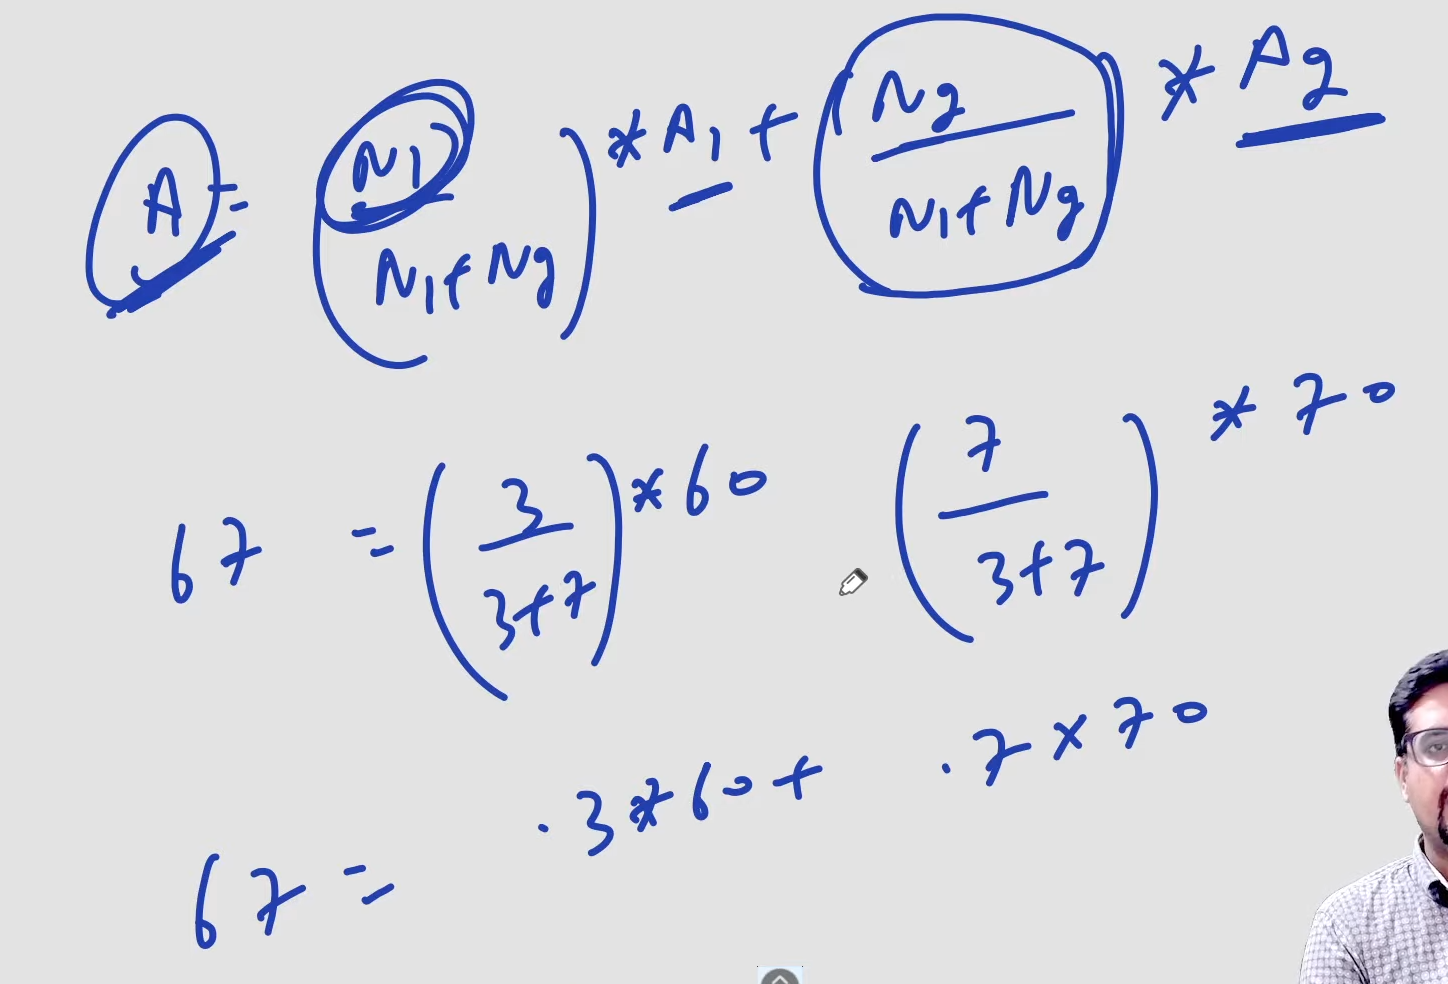 A = (N1 / N1+N2) * A1 + (N2 / N1+N2) * A2
67 = (3 / 3+7) * 60 (7 / 3+7) * 70
67 = .3*60+ .7×70